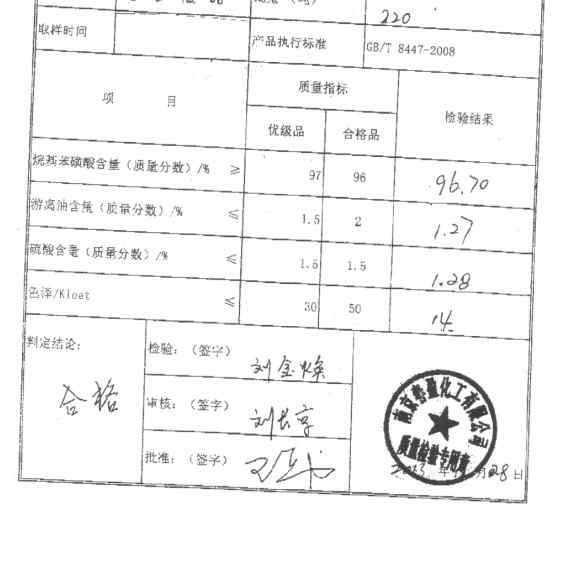 220
取样时间
产品执行标准
GB/T 8447-2008
项 目
质量指标
检验结果
优级品
合格品
烷基苯磺酸含量（质量分数）/% ≥ 97 96 96.70
游离油含量（质量分数）/% ≤ 1.5 2 1.27
硫酸含量（质量分数）/% ≤ 1.5 1.5 1.28
色泽/Klett ≤ 30 50 14
判定结论：
合格
检验：（签字）
审核：（签字）
批准：（签字）
化工有限公司
质量检验专用章
年 月28日